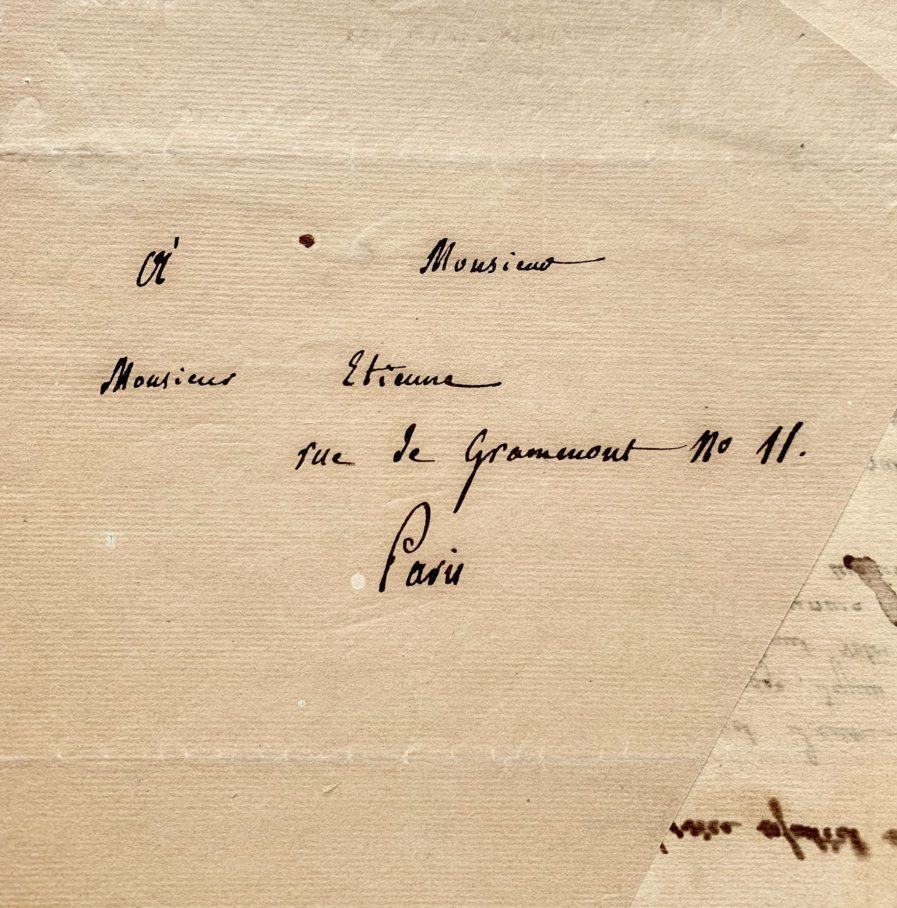 A Monsieur
Monsieur Etienne
rue de Grammont no 11.
Paris